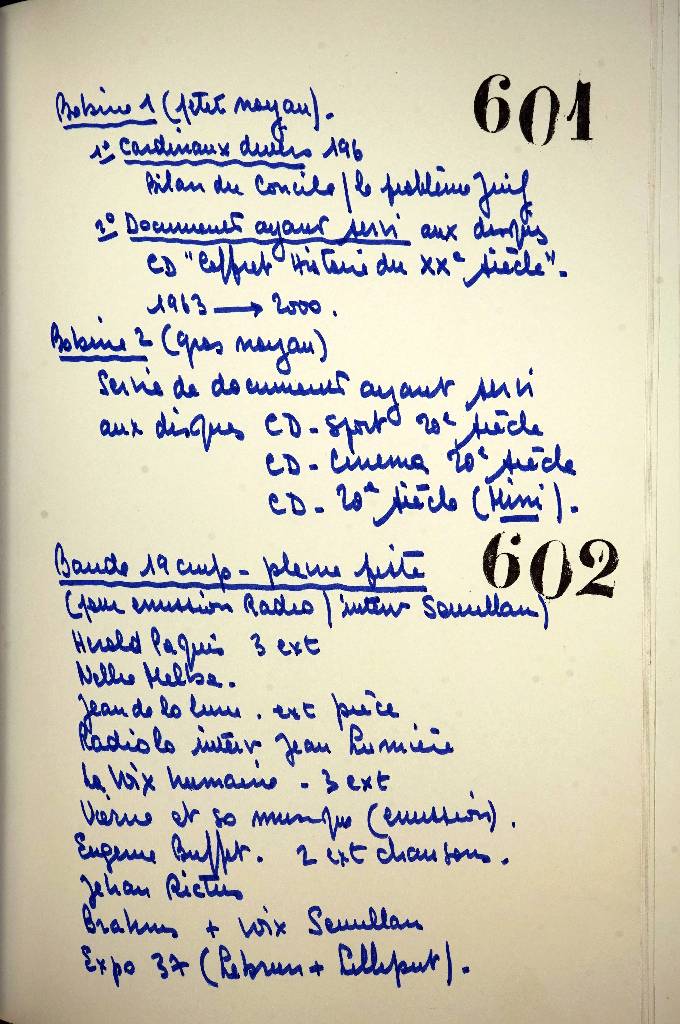 601
Bobine 1 (petit noyau).
1º Cardinaux divers 196
Bilan du Concile / le problème Juif
2º Documents ayant servi aux disques
CD "Coffret Histoire du XXe siècle".
1963 → 2000.
Bobine 2 (gros noyau)
Série de documents ayant servi
aux disques CD - Sport 20e siècle
CD - Cinema 20e siècle
CD - 20e siècle (Mimi).
602
Bande 19 cm/s - pleine piste
(pour emission Radio / interv Semullan)
Herold Paquis 3 ext
Nellie Melba.
Jean de la lune. ext pièce
Radiola interv Jean Lumière
La Voix humaine - 3 ext
Vierne et sa musique (emission).
Eugenie Buffet. 2 ext chansons.
Jehan Rictus
Brahms + voix Semullan
Expo 37 (Lebrun + Lilliput).